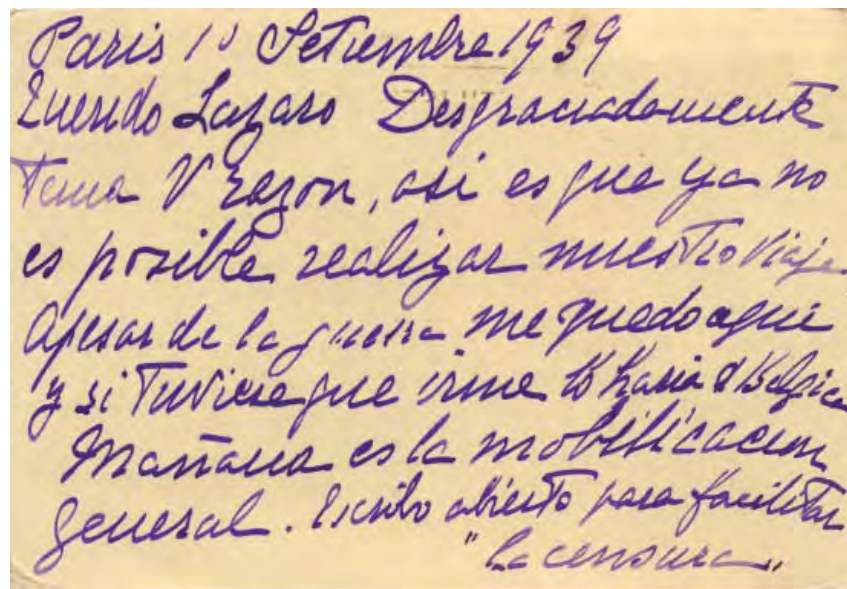 Paris 1º Setiembre 1939
Querido Lazaro Desgraciadamente
tenia V razon, asi es que ya no
es posible realizar nuestro viaje
Apesar de la guerra me quedo aqui
y si tuviese que irme lo haria a Belgica
Mañana es la mobilicacion
general. Escribo abierto para facilitar
"la censura"